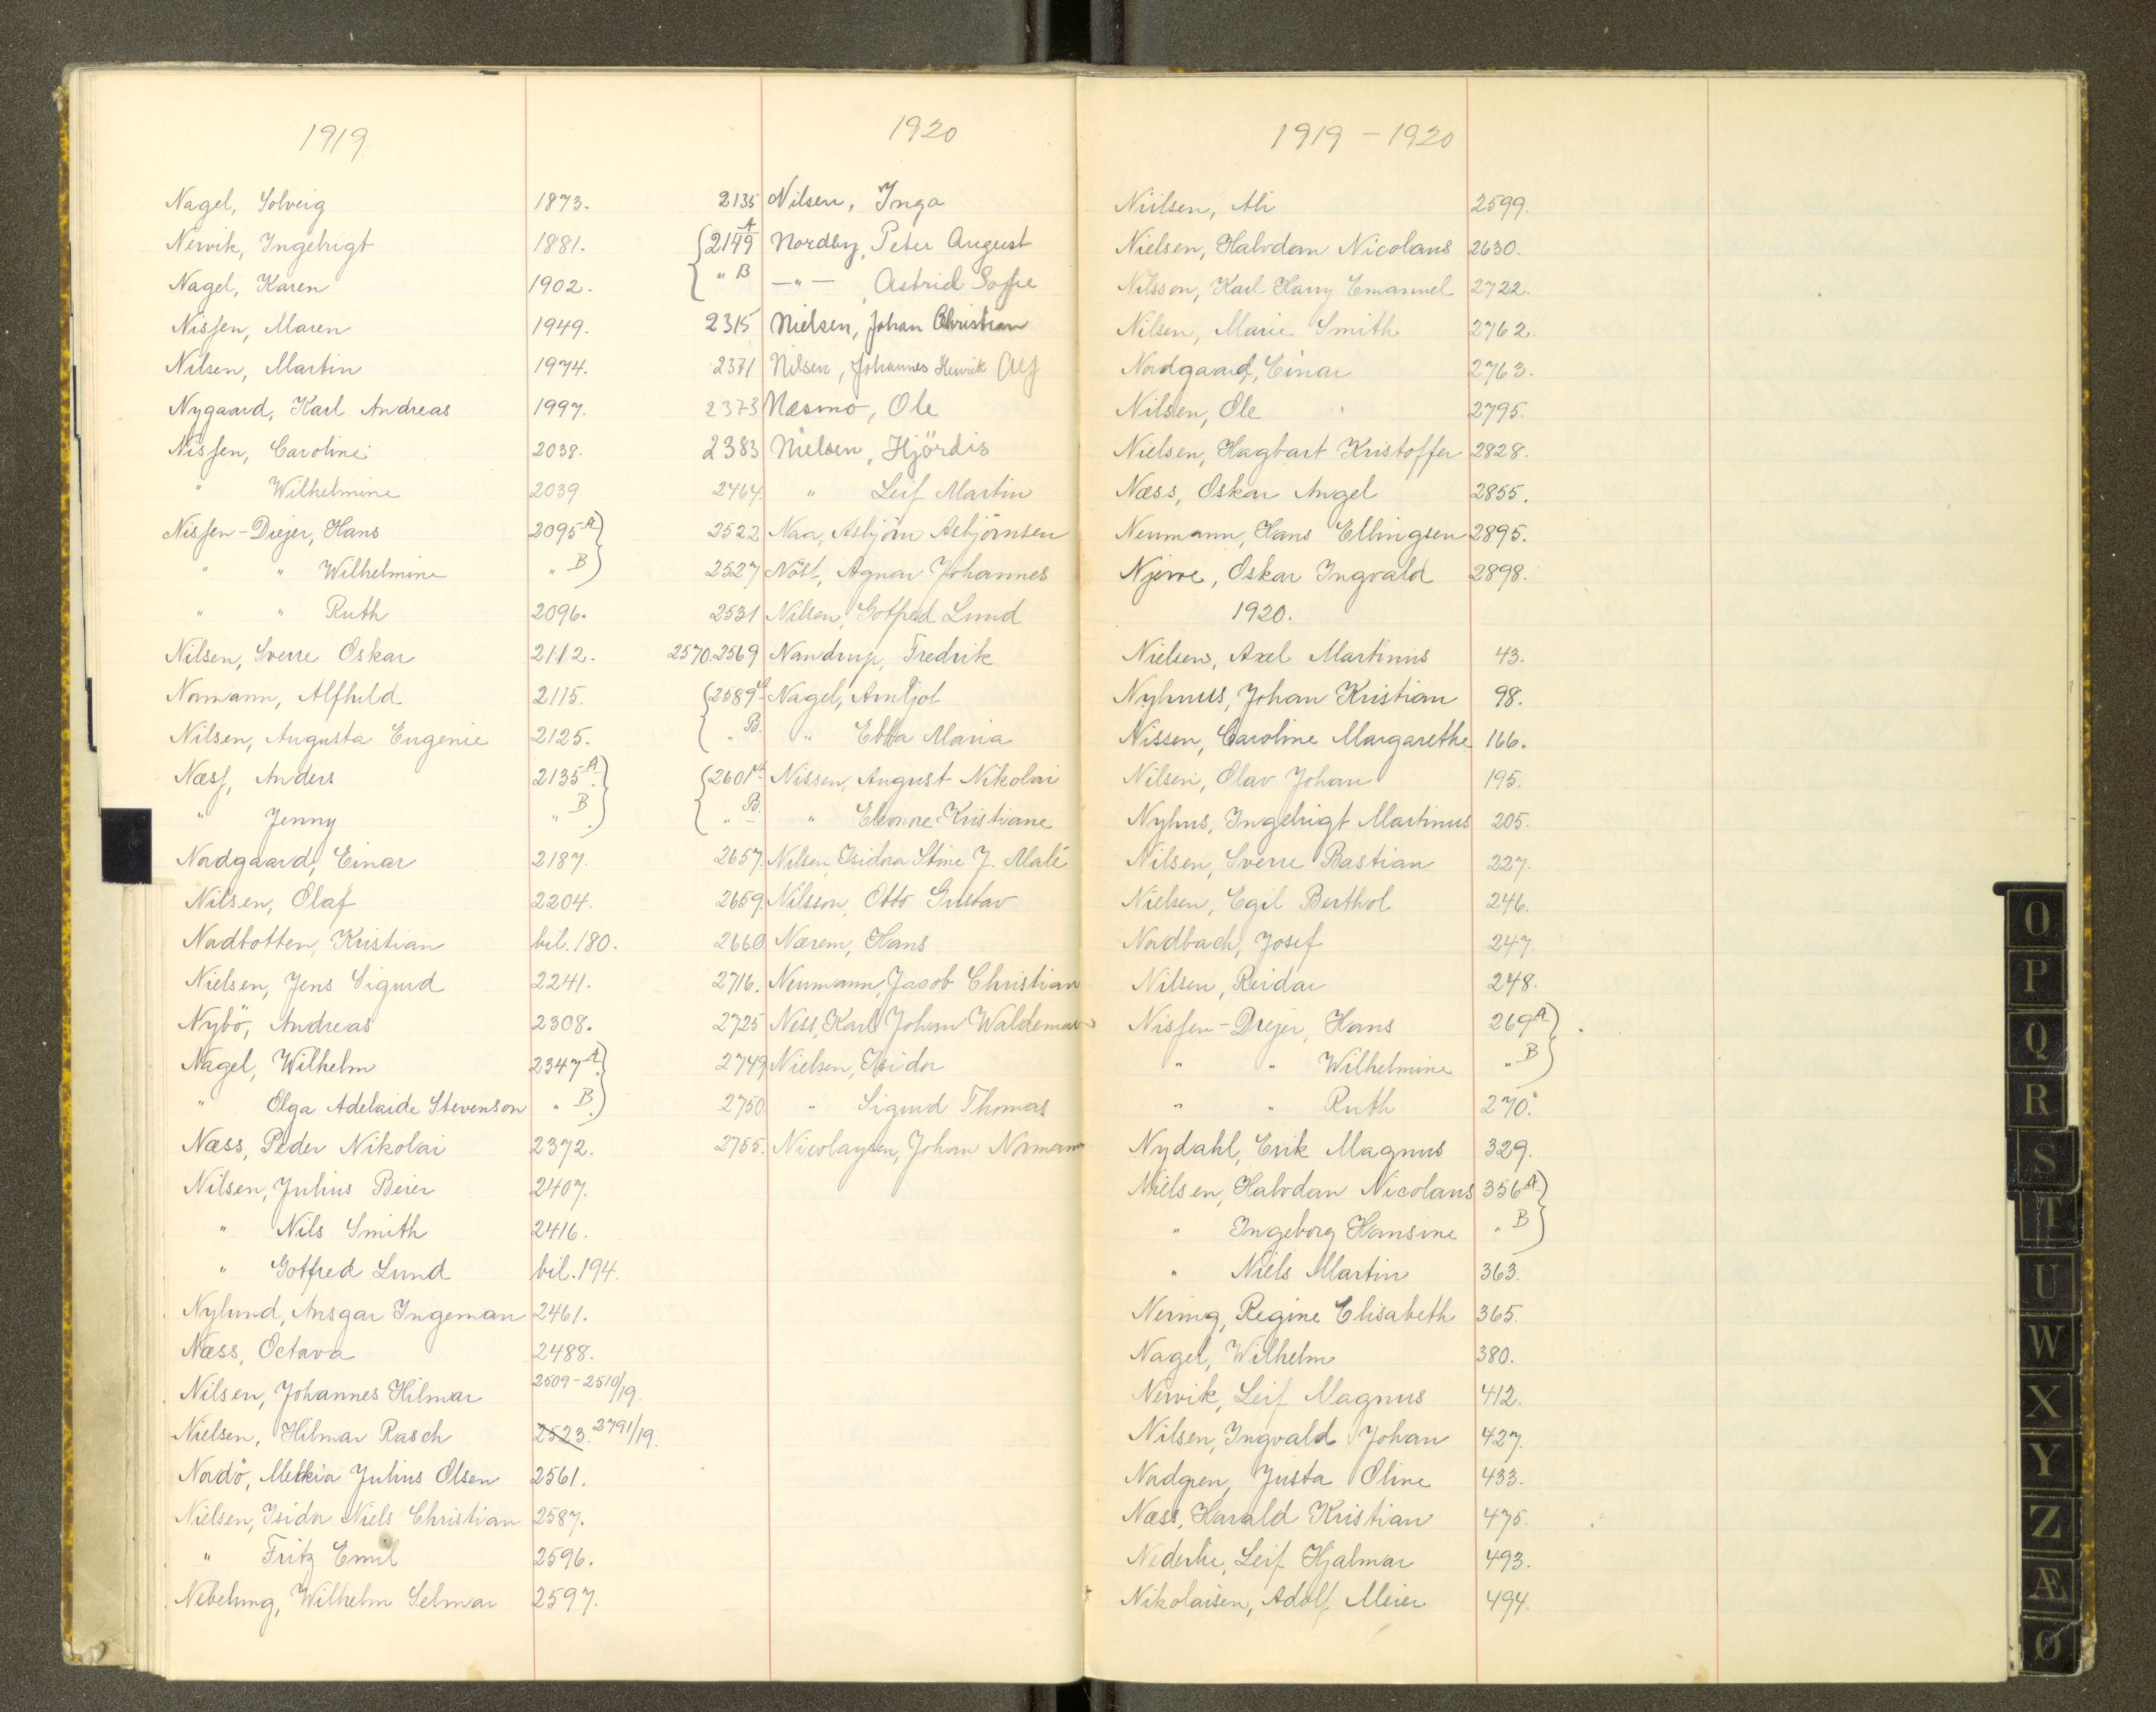 1919
Nagel, Solveig 1873.
Nervik, Ingebrigt 1881.
Nagel, Karen 1902.
Nissen, Maren 1949.
Nilsen, Martin 1974.
Nygaard, Karl Andreas 1997.
Nissen, Caroline 2038.
" Wilhelmine 2039
Nissen-Drejer, Hans 2095 A)
" " Wilhelmine " B)
" " Ruth 2096.
Nilsen, Sverre Oskar 2112.
Normann, Alfhild 2115.
Nilsen, Augusta Eugenie 2125.
Næss, Anders 2135 A.)
" Jenny " B.)
Nordgaard, Einar 2187.
Nilsen, Olaf 2204.
Nordbotten, Kristian bil. 180.
Nielsen, Jens Sigurd 2241.
Nybö, Andreas 2308.
Nagel, Wilhelm 2347 A.)
" Olga Adelaide Stevenson " B.)
Næss, Peder Nikolai 2372.
Nilsen, Julius Beier 2407.
" Nils Smith 2416.
" Gotfred Lund bil. 194.
Nylund, Ansgar Ingeman 2461.
Næss, Octava 2488.
Nilsen, Johannes Hilmar 2509-2510/19.
Nielsen, Hilmar Rasch 2523. 2791/19.
Nordö, Melkia Julius Olsen 2561.
Nielsen, Isidor Niels Christian 2587.
" Fritz Emil 2596.
Nebelung, Wilhelm Selmar 2597.
1920
2135 Nilsen, Inga
{2149 A Nordby, Peter August
{ " B —"— , Astrid Sofie
2315 Nielsen, Johan Christian
2371 Nilsen, Johannes Henrik Alf
2373 Næsmo, Ole
2383 Nielsen, Hjördis
2464. " Leif Martin
2522 Naa, Asbjörn Asbjörnsen
2527 Nöst, Agnar Johannes
2531 Nilsen, Gotfred Lund
2570.2569 Nandrup, Fredrik
{2589 A Nagel, Arnljot
{ " B. " Ebba Maria
{2601 A Nissen, August Nikolai
{ " B. " Eleonore Kristiane
2657. Nilsen, Isidora Stine J. Malé
2659. Nilsson, Otto Gustav
2660 Nærem, Hans
2716. Neumann, Jacob Christian
2725 Ness, Karl Johan Waldemar
2749 Nielsen, Isidor
2750 " Sigurd Thomas
2755. Nicolaysen, Johan Normann
1919 - 1920
Niilsen, Ali 2599.
Nielsen, Halvdan Nicolaus 2630.
Nilsson, Karl Harry Emanuel 2722.
Nilsen, Marie Smith 2762.
Nordgaard, Einar 2763.
Nilsen, Ole 2795.
Nielsen, Hagbart Kristoffer 2828.
Næss, Oskar Angel 2855.
Neumann, Hans Ellingsen 2895.
Njerve, Oskar Ingvald 2898.
1920.
Nielsen, Axel Martinus 43.
Nyhuus, Johan Kristian 98.
Nissen, Caroline Margarethe 166.
Nilsen, Olav Johan 195.
Nyhus, Ingebrigt Martinus 205.
Nilsen, Sverre Bastian 227.
Nielsen, Egil Berthol 246.
Nordbach, Josef 247.
Nilsen, Reidar 248.
Nissen-Drejer, Hans 269 A)
" " Wilhelmine " B)
" " Ruth 270.
Nydahl, Erik Magnus 329.
Nielsen, Halvdan Nicolaus 356 A)
" Ingeborg Hansine " B)
" Niels Martin 363.
Nering, Regine Elisabeth 365.
Nagel, Wilhelm 380.
Nervik, Leif Magnus 412.
Nilsen, Ingvald Johan 427.
Nordgren, Justa Oline 433.
Næss, Harald Kristian 475.
Nederlie, Leif Hjalmar 493.
Nikolaisen, Adolf Meier 494.
O
P
Q
R
S
T
U
W
X
Y
Z
Æ
Ø